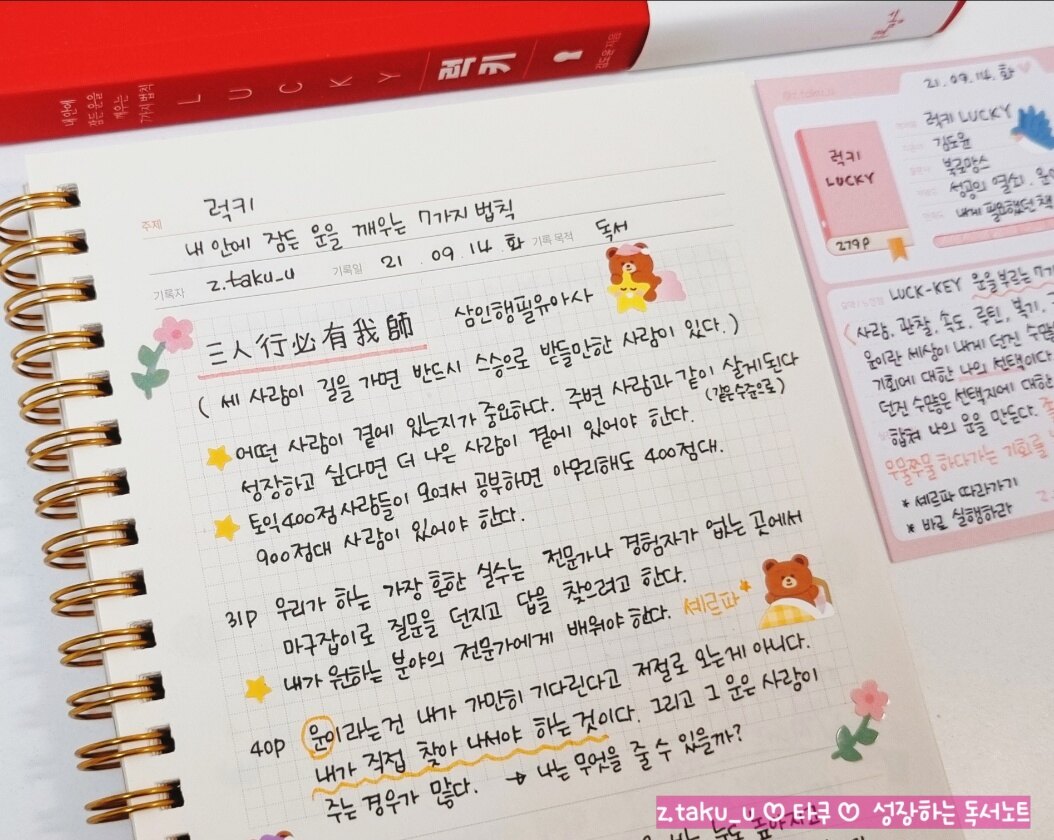 내 안에
잠든 운을
깨우는
7가지 법칙
LUCKY
럭키
김도윤 지음
주제
럭키
내 안에 잠든 운을 깨우는 7가지 법칙
기록자 z.taku_u 기록일 21 . 09 . 14 . 화 기록 목적 독서
三人行必有我師 삼인행필유아사
( 세 사람이 길을 가면 반드시 스승으로 받들만한 사람이 있다. )
어떤 사람이 곁에 있는지가 중요하다. 주변 사람과 같이 살게된다
(같은 수준으로)
성장하고 싶다면 더 나은 사람이 곁에 있어야 한다.
토익400점 사람들이 모여서 공부하면 아무리해도 400점대.
900점대 사람이 있어야 한다.
31p 우리가 하는 가장 흔한 실수는 전문가나 경험자가 없는 곳에서
마구잡이로 질문을 던지고 답을 찾으려고 한다.
내가 원하는 분야의 전문가에게 배워야 한다. 셰르파
40p 운이라는건 내가 가만히 기다린다고 저절로 오는게 아니다.
내가 직접 찾아 나서야 하는 것이다. 그리고 그 운은 사람이
주는 경우가 많다. → 나는 무엇을 줄 수 있을까?
21. 09. 14. 화
럭키
LUCKY
279P
럭키 LUCKY
김도윤
북로망스
성공의 열쇠. 운
내게 필요했던 책
LUCK-KEY 운을부르는 7
사람, 관찰, 속도, 루틴, 복기,
운이란 세상이 내게 던진 수많
기회에 대한 나의 선택이다
던진 수많은 선택지에 대한
합쳐 나의 운을 만든다.
우물쭈물 하다가는 기회를
* 셰르파 따라가기
* 바로 실행하라
z.taku_u ♡ 타쿠 ♡ 성장하는 독서노트